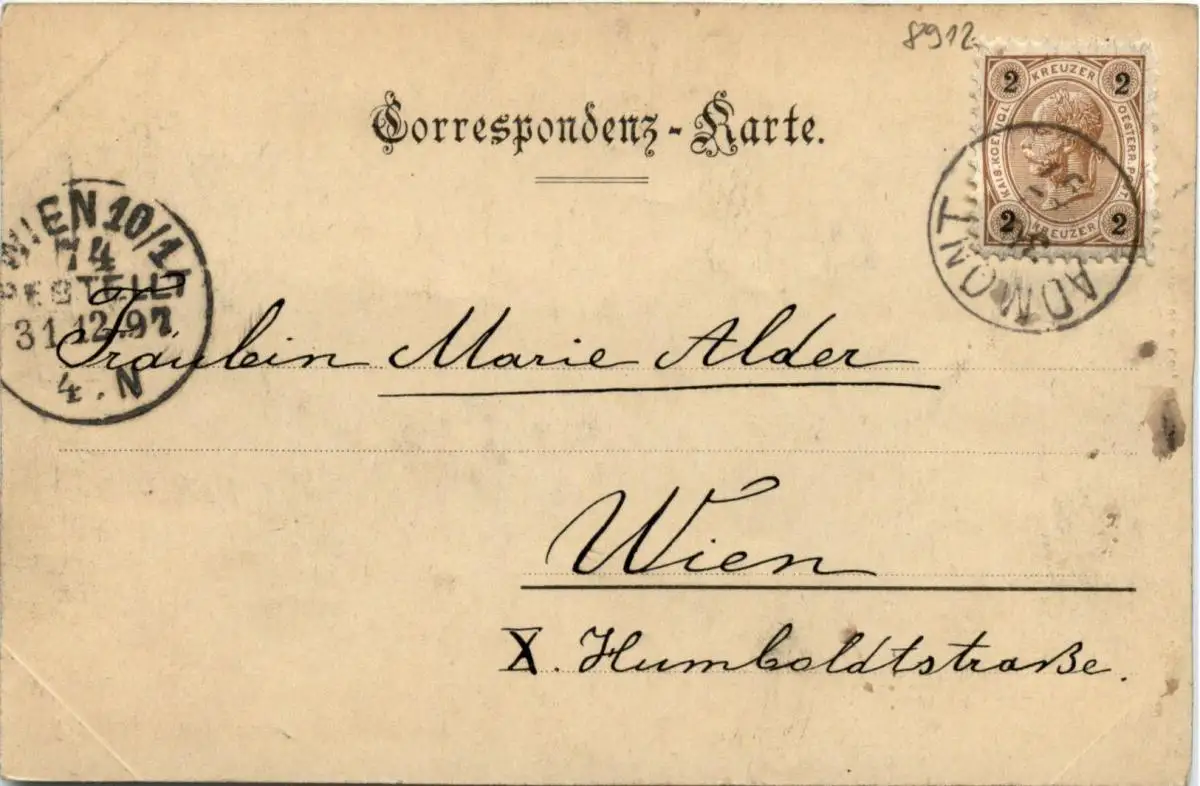 8912
Correspondenz-Karte.
2 KREUZER 2
KAIS. KOENIGL. OESTERR. POST
2 KREUZER 2
ADMONT
WIEN 10/1
74
BESTELLT
31.12.97
4.N
Fräulein Marie Alder
Wien
X. Humboldtstraße.